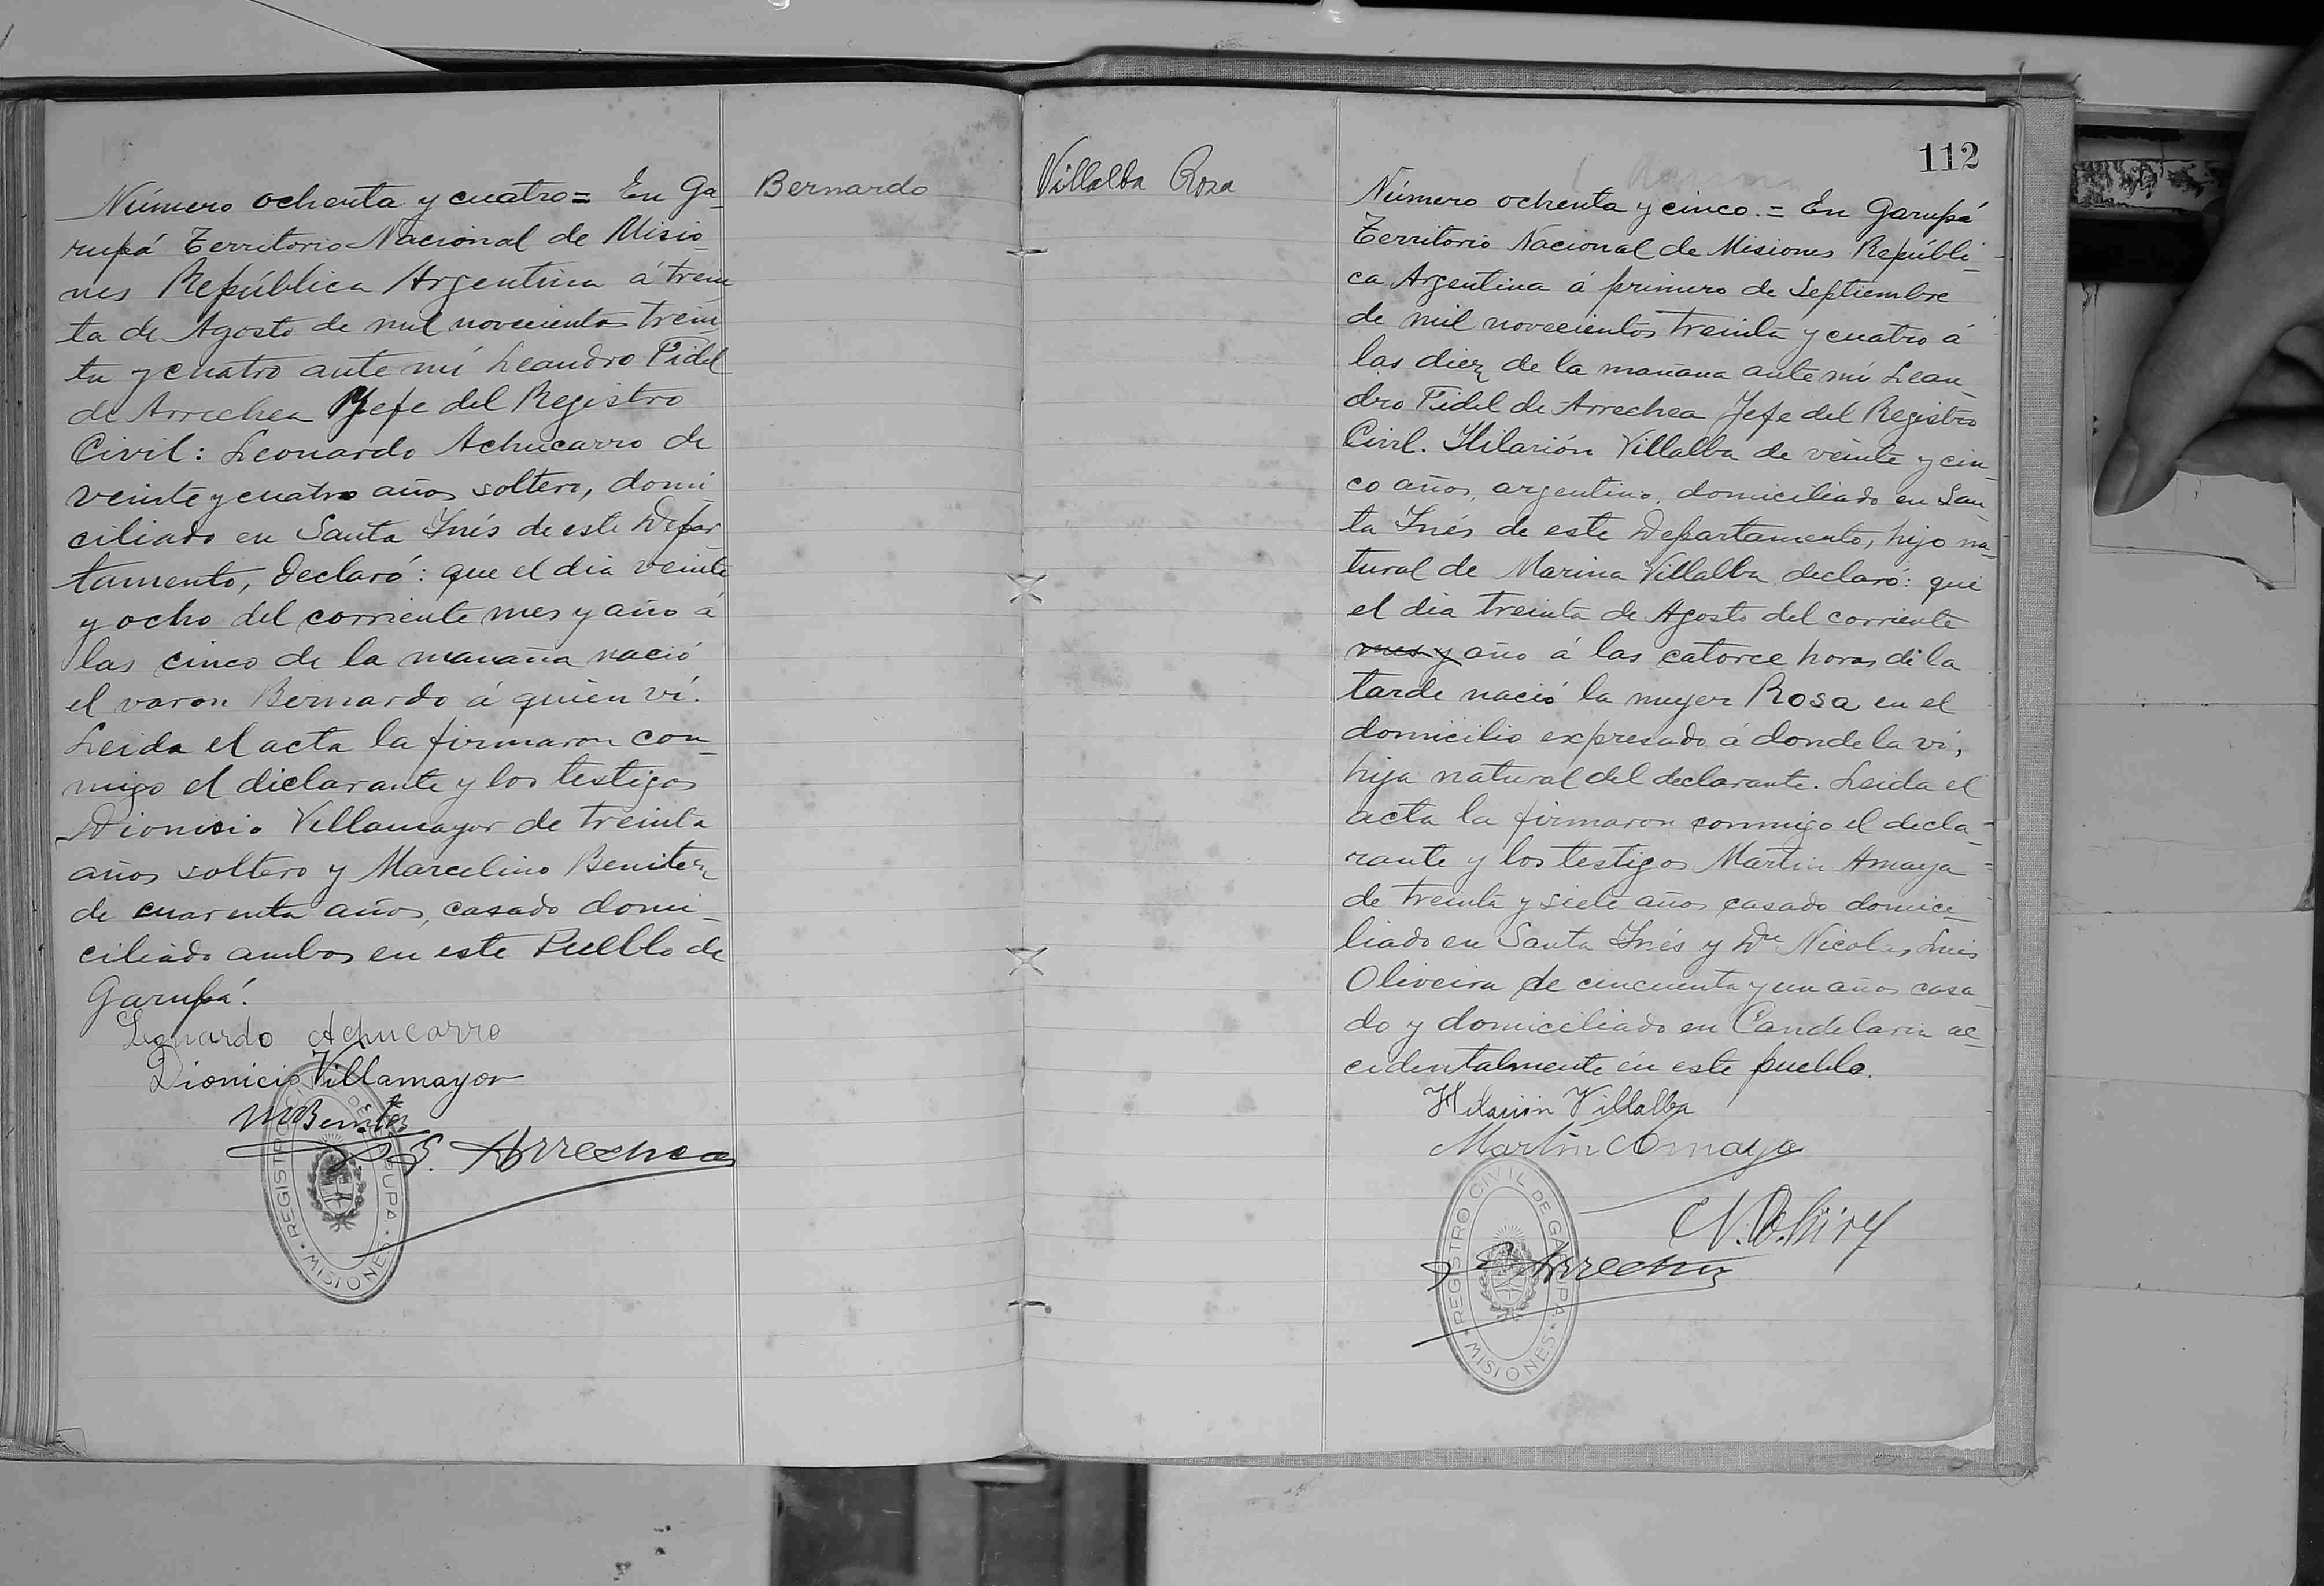 Número ochenta y cuatro = En Ga-
rupá Territorio Nacional de Misio-
nes República Argentina á trein-
ta de Agosto de mil novecientos trein-
ta y cuatro ante mí Leandro Fidel
de Arrechea Jefe del Registro
Civil: Leonardo Achucarro de
veinte y cuatro años soltero, domi
ciliado en Santa Inés de este Depar
tamento, declaró: que el dia veinte
y ocho del corriente mes y año á
las cinco de la mañana nació
el varon Bernardo á quien ví.
Leida el acta la firmaron con-
migo el declarante y los testigos
Dionisio Villamayor de treinta
años soltero y Marcelino Benitez
de cuarenta años, casado domi-
ciliado ambos en este Pueblo de
Garupá.
Leonardo Achucarro
Dionicio Villamayor
M Benitez
Arrechea
REGISTRO CIVIL DE GARUPA
MISIONES
Bernardo
Villalba Rosa
112
Número ochenta y cinco. = En Garupá
Territorio Nacional de Misiones Repúbli-
ca Argentina á primero de Septiembre
de mil novecientos treinta y cuatro á
las diez de la mañana ante mí Lean-
dro Fidel de Arrechea Jefe del Registro
Civil. Hilarión Villalba de veinte y cin-
co años, argentino, domiciliado en San-
ta Inés de este Departamento, hijo na-
tural de Marina Villalba declaró: que
el dia treinta de Agosto del corriente
mes y año á las catorce horas de la
tarde nació la mujer Rosa en el
domicilio expresado á donde la ví,
hija natural del declarante. Leida el
acta la firmaron conmigo el decla-
rante y los testigos Martin Amaya
de treinta y siete años casado domici-
liado en Santa Inés y Dn Nicolas Luis
Oliveira de cincuenta y un años casa-
do y domiciliado en Candelaria ac-
cidentalmente en este pueblo.
Hilarión Villalba
Martin Amaya
Arrechea
REGISTRO CIVIL DE GARUPA
MISIONES